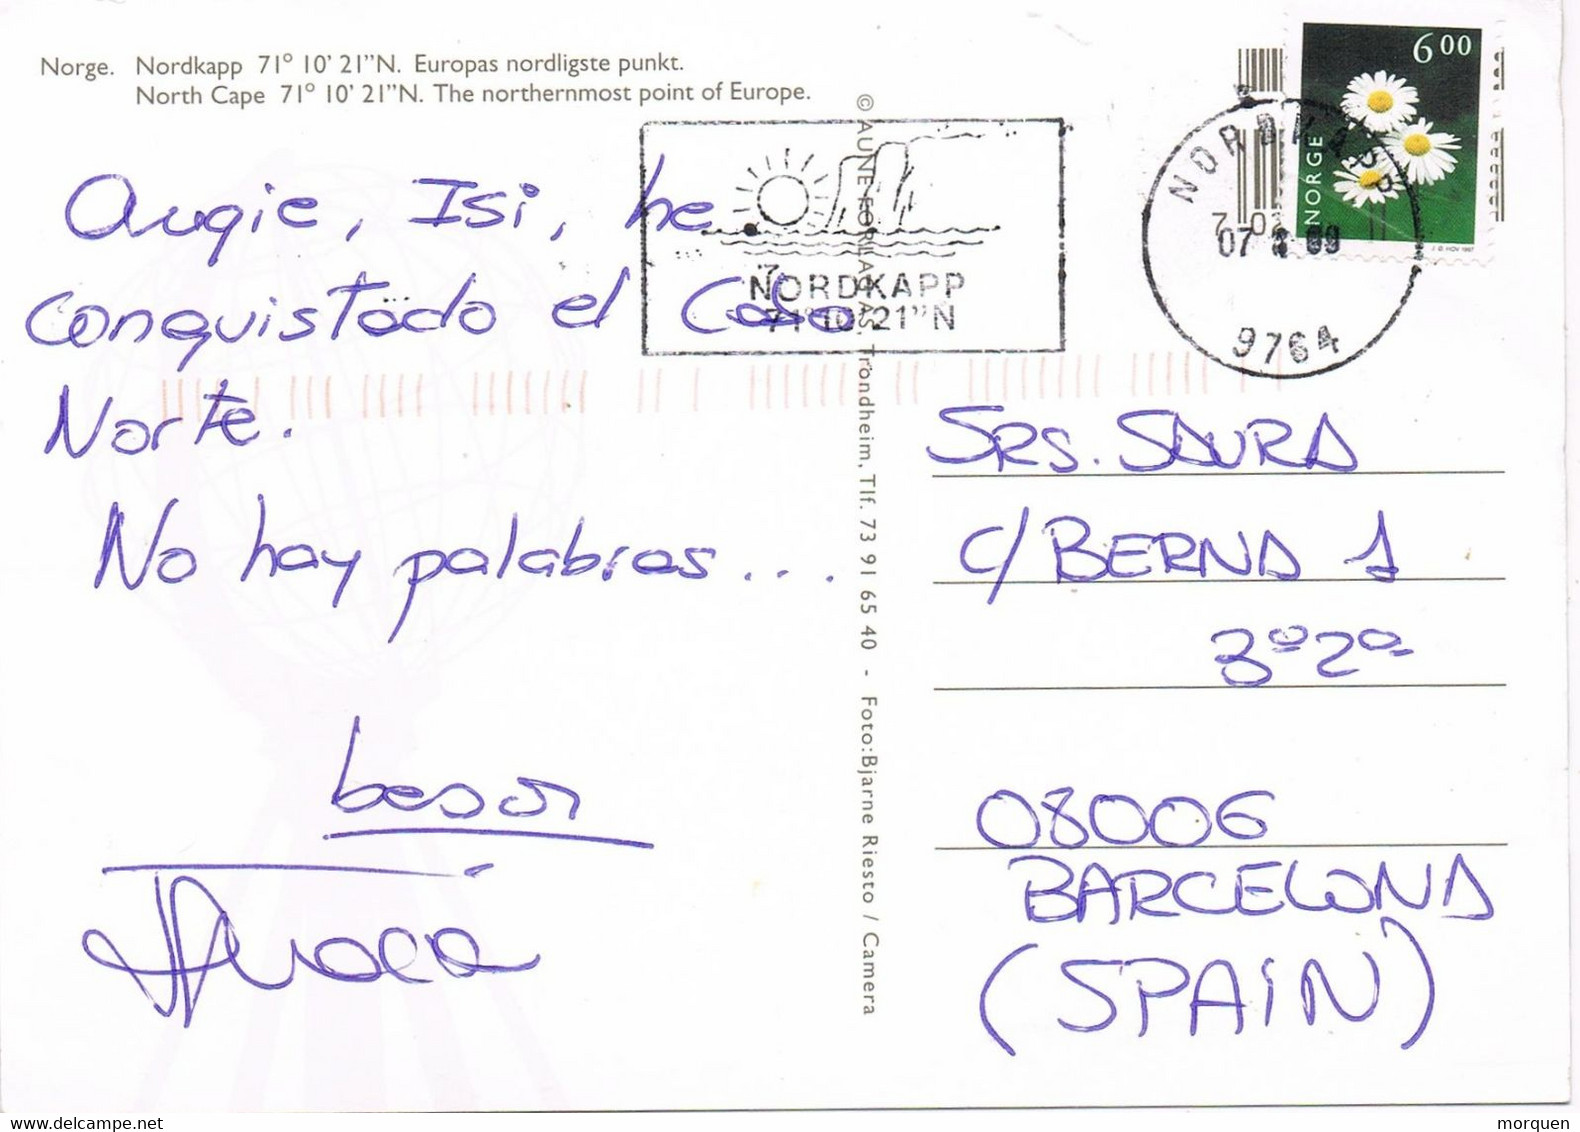 Norge. Nordkapp 71° 10' 21"N. Europas nordligste punkt.
North Cape 71° 10' 21"N. The northernmost point of Europe.
6 00
NORGE
NORDKAPP
07 09
9764
NORDKAPP
71°10'21"N
Augie, Isi, he
conquistado el Cabo
Norte.
No hay palabras...
besos
© AUNE FORLAG AS, Trondheim, Tlf. 73 91 65 40 - Foto: Bjarne Riesto / Camera
SRS. SAURA
C/ BERNA 1
3º 2ª
08006
BARCELONA
(SPAIN)
morquen
delcampe.net